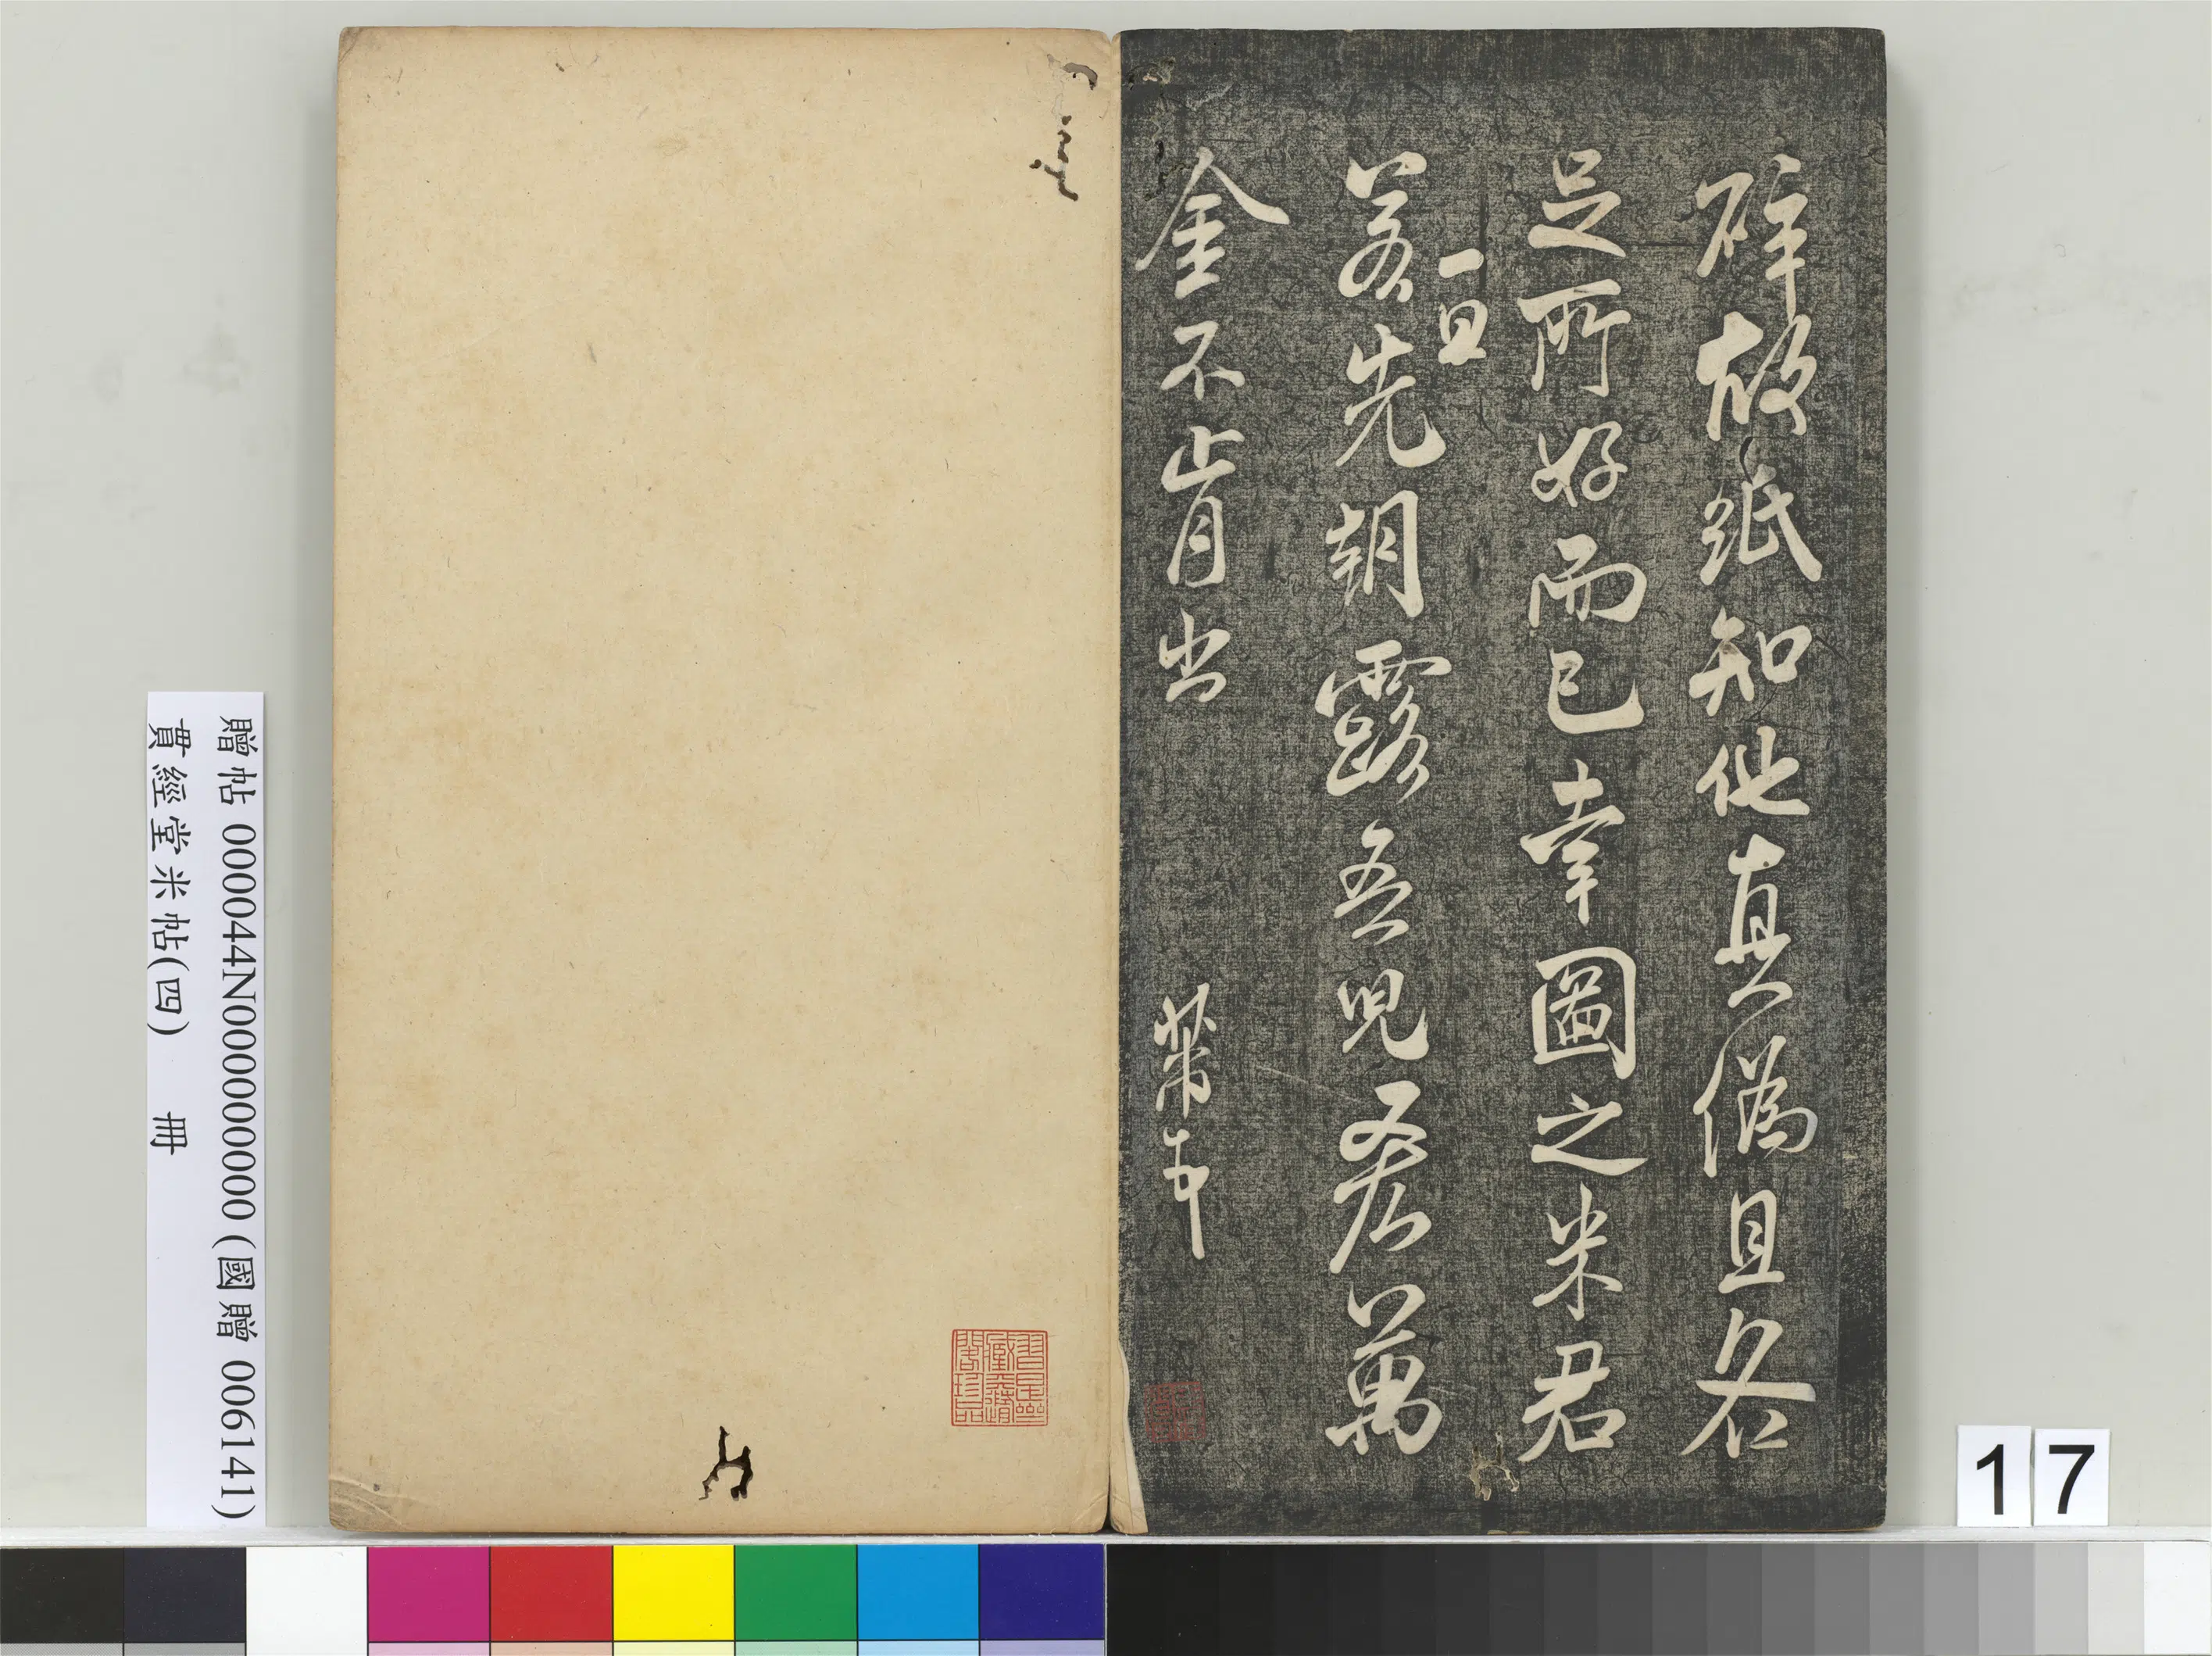 碎故紙知他真偽且各
足所好而已幸圖之米君
一旦
若先朝露吾兒吝萬
金不肯出
芾書
贈帖 000044N000000000 (國贈 006141)
貫經堂米帖(四) 冊
17